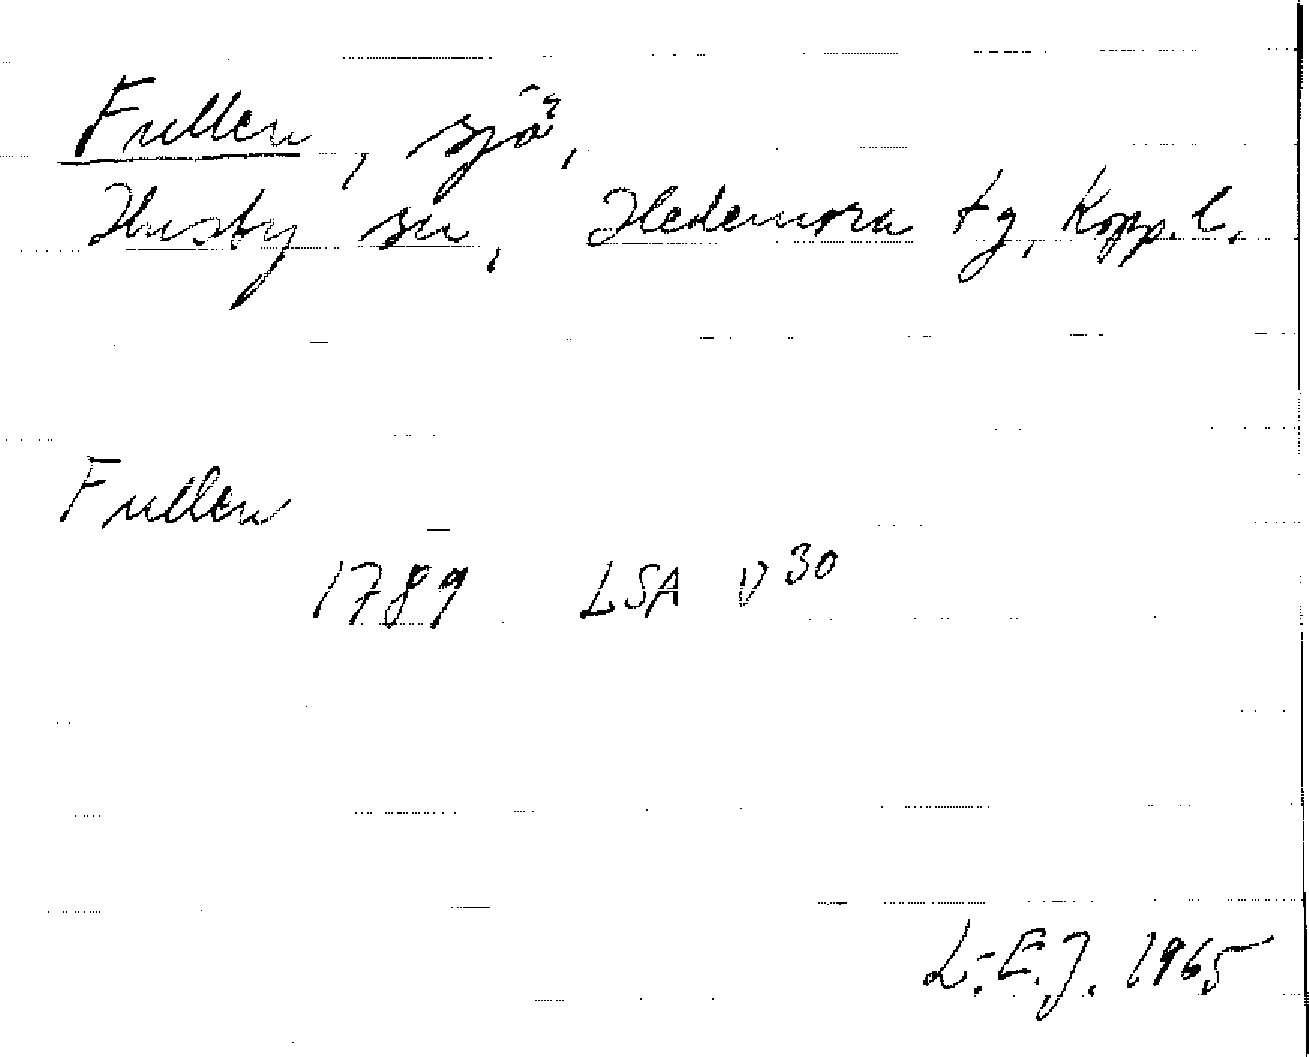 Fullen, sjö,
Husby sn, Hedemora tg, Kopp.l.
Fullen
1789 LSA V 30
L.-E.J. 1965